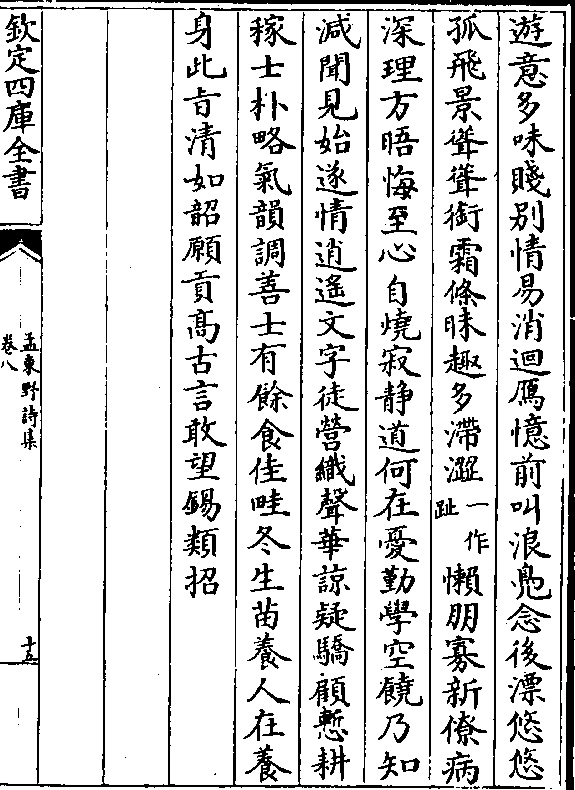 遊意多味賤别情易消迴鴈憶前叫浪鳧念後漂悠悠
孤飛景聳聳銜霜條昧趣多滯澀一作趾懶朋寡新僚病
深理方晤悔至心自燒寂静道何在憂勤學空饒乃知
減聞見始遂情逍遥文字徒營織聲華諒疑驕顧慙耕
稼士朴略氣韻調善士有餘食佳畦冬生苗養人在養
身此㫖清如韶願貢髙古言敢望錫類招
欽定四庫全書
孟東野詩集
卷八
十五